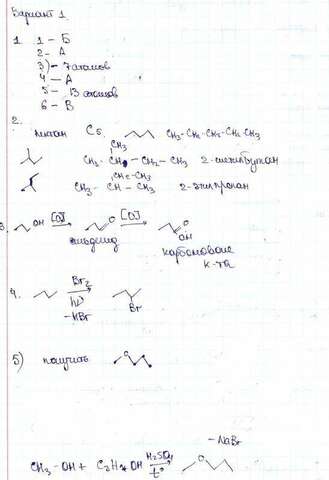 Вариант 1
1. 1 – Б
2 – А
3) – 7 атомов
4 – А
5 – 13 атомов
6 – В
2.
пентан C5 CH3-CH2-CH2-CH2-CH3
CH3
CH3-CH-CH2-CH3 2-метилбутан
CH2-CH3
CH3-CH-CH3 2-этилпропан
3. OH [O] O [O] O
OH
альдегид карбоновые
к-ты
4. Br2
hν
-HBr Br
5) получить O
-NaBr
CH3-OH + OH H2SO4 O
t°